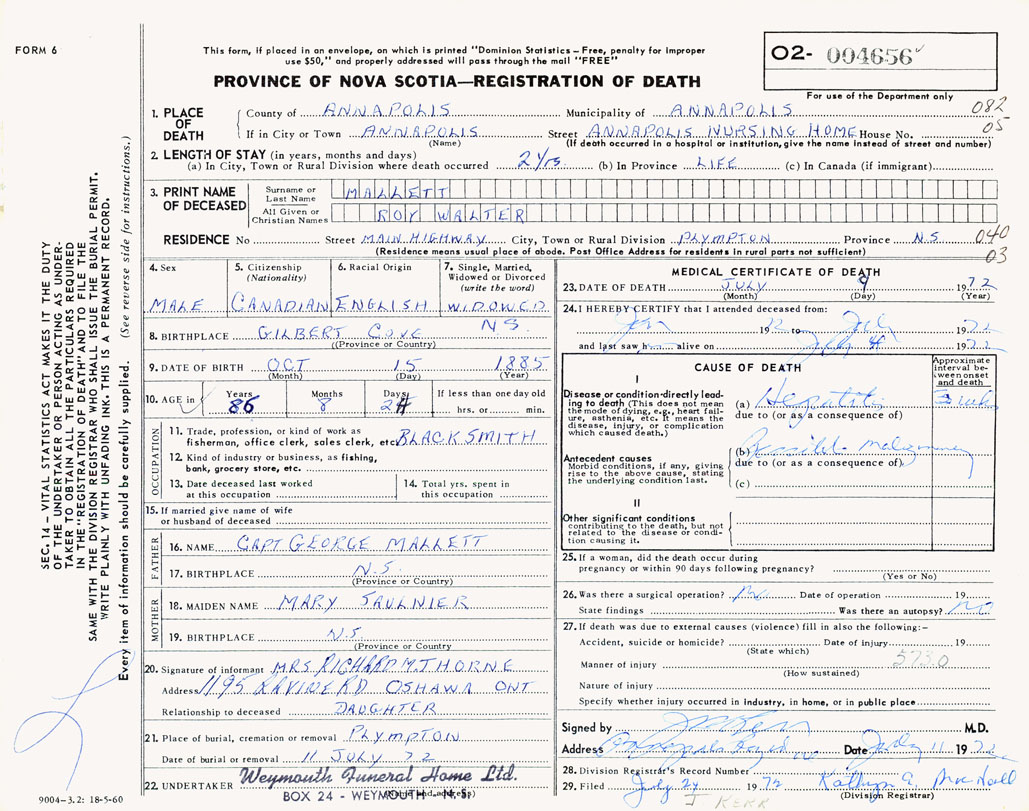 FORM 6
This form, if placed in an envelope, on which is printed "Dominion Statistics – Free, penalty for improper
use $50," and properly addressed will pass through the mail "FREE"
PROVINCE OF NOVA SCOTIA—REGISTRATION OF DEATH
O2- 004656
For use of the Department only
SEC. 14 – VITAL STATISTICS ACT MAKES IT THE DUTY
OF THE UNDERTAKER OR PERSON ACTING AS UNDER-
TAKER TO OBTAIN ALL THE PARTICULARS REQUIRED
IN THE "REGISTRATION OF DEATH" AND TO FILE THE
SAME WITH THE DIVISION REGISTRAR WHO SHALL ISSUE THE BURIAL PERMIT.
WRITE PLAINLY WITH UNFADING INK. THIS IS A PERMANENT RECORD.
Every item of information should be carefully supplied. (See reverse side for instructions.)
1. PLACE OF DEATH County of ANNAPOLIS Municipality of ANNAPOLIS 082
If in City or Town ANNAPOLIS Street ANNAPOLIS NURSING HOME House No. 05
(Name) (If death occurred in a hospital or institution, give the name instead of street and number)
2. LENGTH OF STAY (in years, months and days)
(a) In City, Town or Rural Division where death occurred 2 yrs. (b) In Province LIFE (c) In Canada (if immigrant)
3. PRINT NAME OF DECEASED Surname or Last Name MALLETT
All Given or Christian Names ROY WALTER
RESIDENCE No Street MAIN HIGHWAY City, Town or Rural Division PLYMPTON Province N.S. 040
(Residence means usual place of abode. Post Office Address for residents in rural parts not sufficient) 03
4. Sex 5. Citizenship (Nationality) 6. Racial Origin 7. Single, Married, Widowed or Divorced (write the word)
MALE CANADIAN ENGLISH WIDOWED
8. BIRTHPLACE GILBERT COVE N.S.
(Province or Country)
9. DATE OF BIRTH OCT 15 1885
(Month) (Day) (Year)
10. AGE in Years Months Days If less than one day old
86 8 24 hrs. or min.
OCCUPATION
11. Trade, profession, or kind of work as
fisherman, office clerk, sales clerk, etc. BLACKSMITH
12. Kind of industry or business, as fishing,
bank, grocery store, etc.
13. Date deceased last worked at this occupation 14. Total yrs. spent in this occupation
15. If married give name of wife
or husband of deceased
FATHER
16. NAME CAPT GEORGE MALLETT
17. BIRTHPLACE N.S.
(Province or Country)
MOTHER
18. MAIDEN NAME MARY SAULNIER
19. BIRTHPLACE N.S.
(Province or Country
20. Signature of informant MRS. RICHARD M. THORNE
Address 1195 RAVINE RD OSHAWA ONT
Relationship to deceased DAUGHTER
21. Place of burial, cremation or removal PLYMPTON
Date of burial or removal 11 JULY 72
22. UNDERTAKER Weymouth Funeral Home Ltd.
BOX 24 - WEYMOUTH - N.S.
9004-3.2: 18-5-60
MEDICAL CERTIFICATE OF DEATH
23. DATE OF DEATH JULY 9 1972
(Month) (Day) (Year)
24. I HEREBY CERTIFY that I attended deceased from:
Jan 1972 to July 1972
and last saw alive on July 1972
CAUSE OF DEATH
Approximate interval between onset and death
I
Disease or condition directly leading to death (This does not mean the mode of dying, e.g., heart failure, asthenia, etc. It means the disease, injury, or complication which caused death.)
(a) Hepatitis 3 wks
due to (or as a consequence of)
Antecedent causes
Morbid conditions, if any, giving rise to the above cause, stating the underlying condition last.
(b) Possible Malignancy
due to (or as a consequence of)
(c)
II
Other significant conditions
contributing to the death, but not related to the disease or condition causing it.
25. If a woman, did the death occur during
pregnancy or within 90 days following pregnancy?
(Yes or No)
26. Was there a surgical operation? No Date of operation 19
State findings Was there an autopsy? NO
27. If death was due to external causes (violence) fill in also the following:–
Accident, suicide or homicide? Date of injury 19
(State which)
Manner of injury 573.0
(How sustained)
Nature of injury
Specify whether injury occurred in industry, in home, or in public place
Signed by M.D.
Address Annapolis Royal NS Date July 11 1972
28. Division Registrar's Record Number
29. Filed July 24 1972 Kathryn E. MacNall
(Division Registrar)
J. KERR